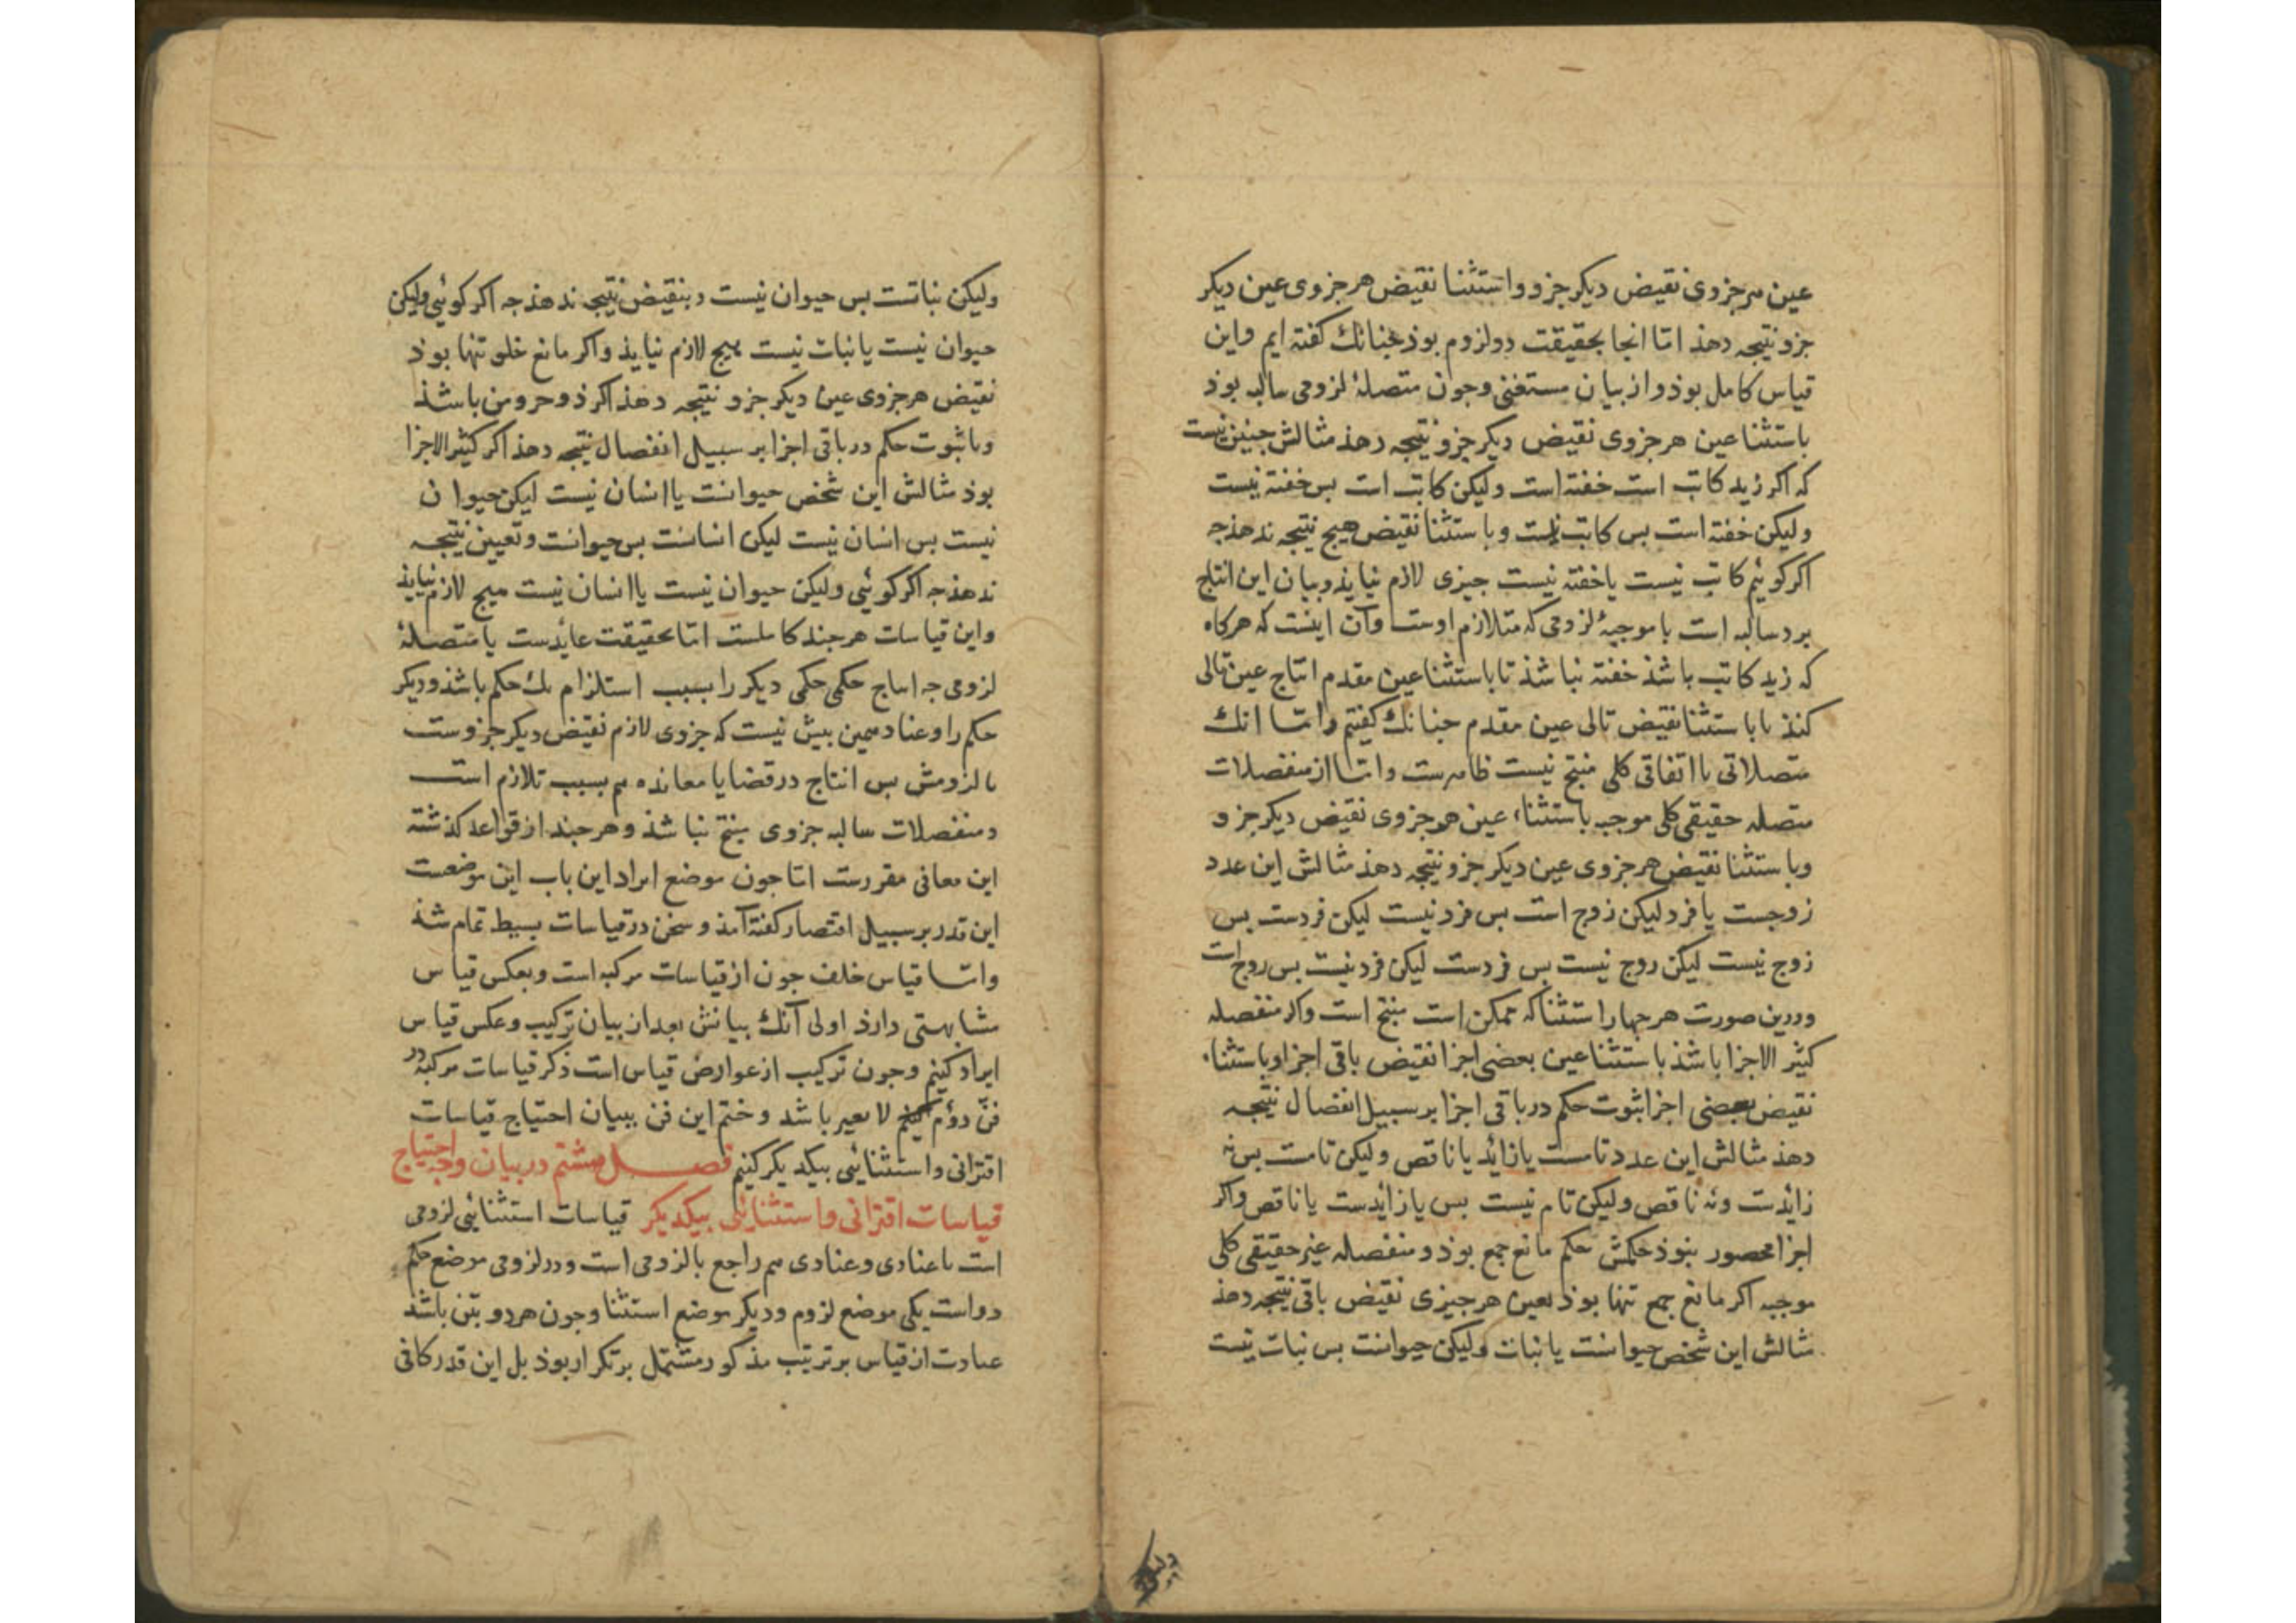 عین هر جزوی نقیض دیکر جزو و استثنا نقیض هر جزوی عین دیکر
جزو نتیجه دهذ اما انجا بحقیقت دو لزوم بوذ جنانك کفته ایم واین
قیاس کامل بوذ و از بیان مستغنی وجون متصلهٔ لزومی سالبه بوذ
باستثنا عین هر جزوی نقیض دیکر جزو نتیجه دهذ مثالش جنین نیست
که اکر زید کاتب است خفته است ولیکن کاتب است بس خفته نیست
ولیکن خفته است بس کاتب نیست وباستثنا نقیض هیج نتیجه ندهذ جه
اکر کوئیم کاتب نیست یا خفته نیست جیزی لازم نیایذ وبیان این انتاج
برد سالبه است با موجبهٔ لزومی که متلازم اوست وآن اینست که هرکاه
که زید کاتب باشذ خفته نباشذ تا باستثنا عین مقدم انتاج عین تالی
کنذ یا باستثنا نقیض تالی عین مقدم جنانك کفتیم واما انك
متصلاتی با اتفاقی کلی منتج نیست ظاهرست واما از منفصلات
متصله حقیقی کلی موجبه باستثناء عین هر جزوی نقیض دیکر جزو
وباستثنا نقیض هر جزوی عین دیکر جزو نتیجه دهذ مثالش این عدد
زوجست یا فرد لیکن زوج است بس فرد نیست لیکن فردست بس
زوج نیست لیکن زوج نیست بس فردست لیکن فرد نیست بس زوج است
ودرین صورت هر جهار استثنا که ممکن است منتج است واکر منفصله
کثیر الاجزا باشذ باستثنا عین بعضی اجزا نقیض باقی اجزا وباستثناء
نقیض بعضی اجزا ثبوت حکم در باقی اجزا بر سبیل انفصال نتیجه
دهذ مثالش این عدد تامست یا زائد یا ناقص ولیکن تامست بس نه
زایدست ونه ناقص ولیکن تام نیست بس یا زایدست یا ناقص واکر
اجزا محصور نبوذ حکمش حکم مانع جمع بوذ ومنفصله غیر حقیقی کلی
موجبه اکر مانع جمع تنها بوذ بعین هر جیزی نقیض باقی نتیجه دهذ
مثالش این شخص حیوانست یا نبات ولیکن حیوانست بس نبات نیست
ولیکن نباتست بس حیوان نیست وبنقیض نتیجه ندهذ جه اکر کوئی ولیکن
حیوان نیست یا نبات نیست هیج لازم نیایذ واکر مانع خلو تنها بوذ
نقیض هر جزوی عین دیکر جزو نتیجه دهذ اکر ذو جزوین باشذ
وبا ثبوت حکم در باقی اجزا بر سبیل انفصال نتیجه دهذ اکر کثیر الاجزا
بوذ مثالش این شخص حیوانست یا انسان نیست لیکن حیوان
نیست بس انسان نیست لیکن انسانست بس حیوانست وتعیین نتیجه
ندهذ جه اکر کوئی ولیکن حیوان نیست یا انسان نیست هیج لازم نیایذ
واین قیاسات هر جند کاملست اما بحقیقت عایدست با متصلهٔ
لزومی جه انتاج حکمی حکمی دیکر را بسبب استلزام یك حکم باشذ ودیکر
حکم را وعناد همین بیش نیست که جزوی لازم نقیض دیکر جزوست
یا لزومش بس انتاج در قضایا معانده هم بسبب تلازم است
ومنفصلات سالبه جزوی منتج نباشذ وهر جند از قواعد کذشته
این معانی مقررست اما جون موضع ایراد این باب این موضعست
این قدر بر سبیل اقتصار کفته آمذ وسخن در قیاسات بسیط تمام شذ
واما قیاس خلف جون از قیاسات مرکبه است وبعکس قیاس
مشابهتی دارذ اولی آنك بیانش بعد از بیان ترکیب وعکس قیاس
ایراد کنیم وجون ترکیب از عوارض قیاس است ذکر قیاسات مرکبه در
فن دوم کنیم لایق باشد وختم این فن ببیان احتیاج قیاسات
اقترانی واستثنائی بیکدیکر کنیم فصل هشتم در بیان وجه احتیاج
قیاسات اقترانی واستثنائی بیکدیکر قیاسات استثنائی لزومی
است یا عنادی وعنادی هم راجع بالزومی است ودر لزومی موضع حکم
دو است یکی موضع لزوم ودیکر موضع استثنا وجون هردو بین باشد
عبارت از قیاس بر ترتیب مذکور مشتمل بر تکرار بوذ بل این قدر کافی